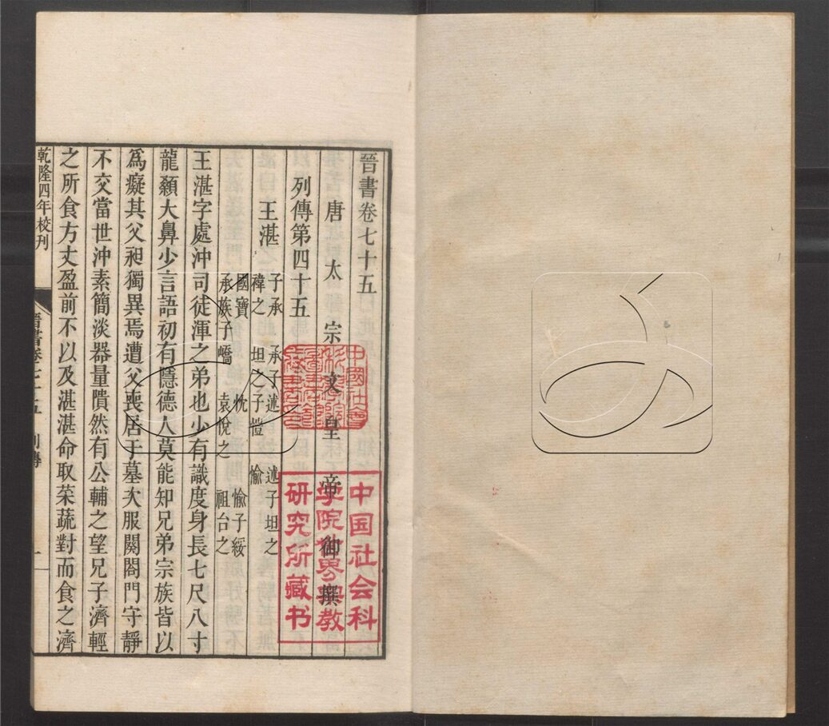 晉書卷七十五
唐太宗文皇帝御撰
列傳第四十五
王湛
子承 承子述 述子坦之
禕之 坦之子愷 愉
國寶 忱 愉子綏
承族子嶠 袁悅之 祖台之
王湛字處沖司徒渾之弟也少有識度身長七尺八寸
龍顙大鼻少言語初有隱德人莫能知兄弟宗族皆以
爲癡其父昶獨異焉遭父喪居于墓次服闋闔門守靜
不交當世沖素簡淡器量隤然有公輔之望兄子濟輕
之所食方丈盈前不以及湛湛命取菜蔬對而食之濟
乾隆四年校刊
晉書卷七十五 列傳 一
中國社會
中国社会科
学院世界宗教
研究所藏书